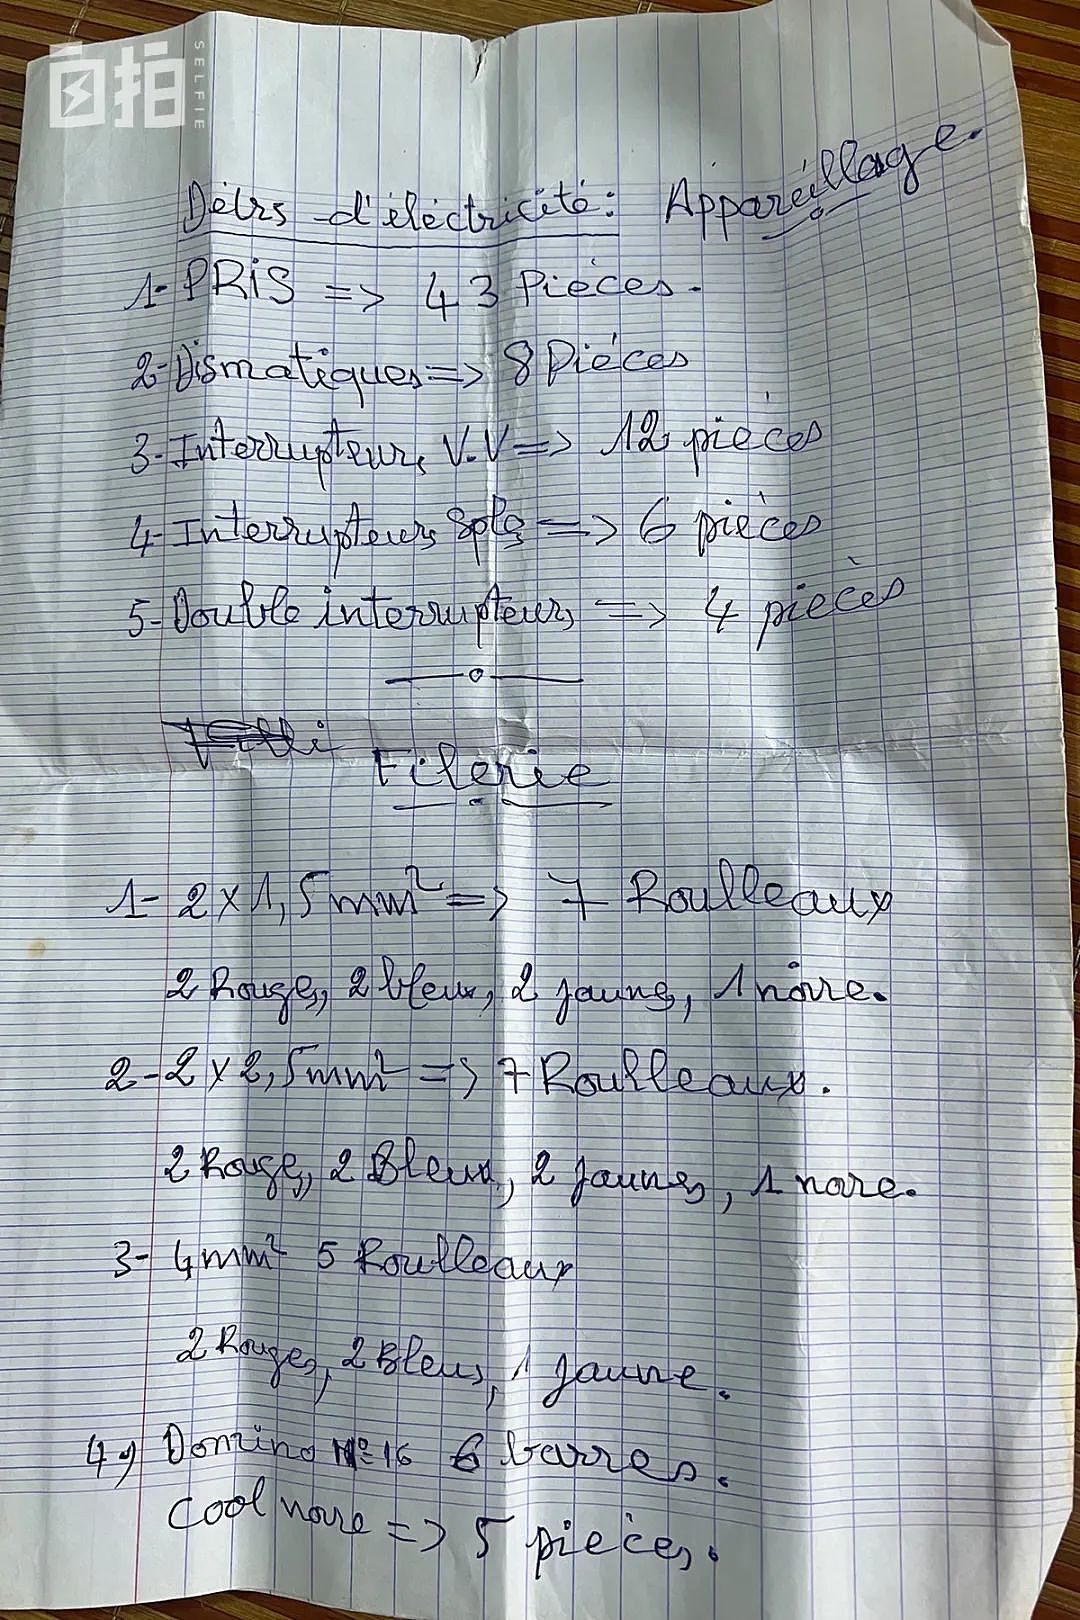 自拍
SELFIE
Détrs d'éléctricité: Appareillage.
1- PRiS => 43 Pièces.
2- Dismatiques => 8 Pièces
3- Interrupteurs V.V => 12 pièces
4- Interrupteurs Spls => 6 pièces
5- Double interrupteurs => 4 pièces
Filerie
1- 2x1,5mm² => 7 Roulleaux
2 Rouges, 2 bleux, 2 jaunes, 1 noire.
2- 2x2,5mm² => 7 Roulleaux.
2 Rouges, 2 Bleux, 2 jaunes, 1 noire.
3- 4mm² 5 Roulleaux
2 Rouges, 2 Bleus, 1 jaune.
4) Domino N°16 6 barres.
Cool noire => 5 pièces.